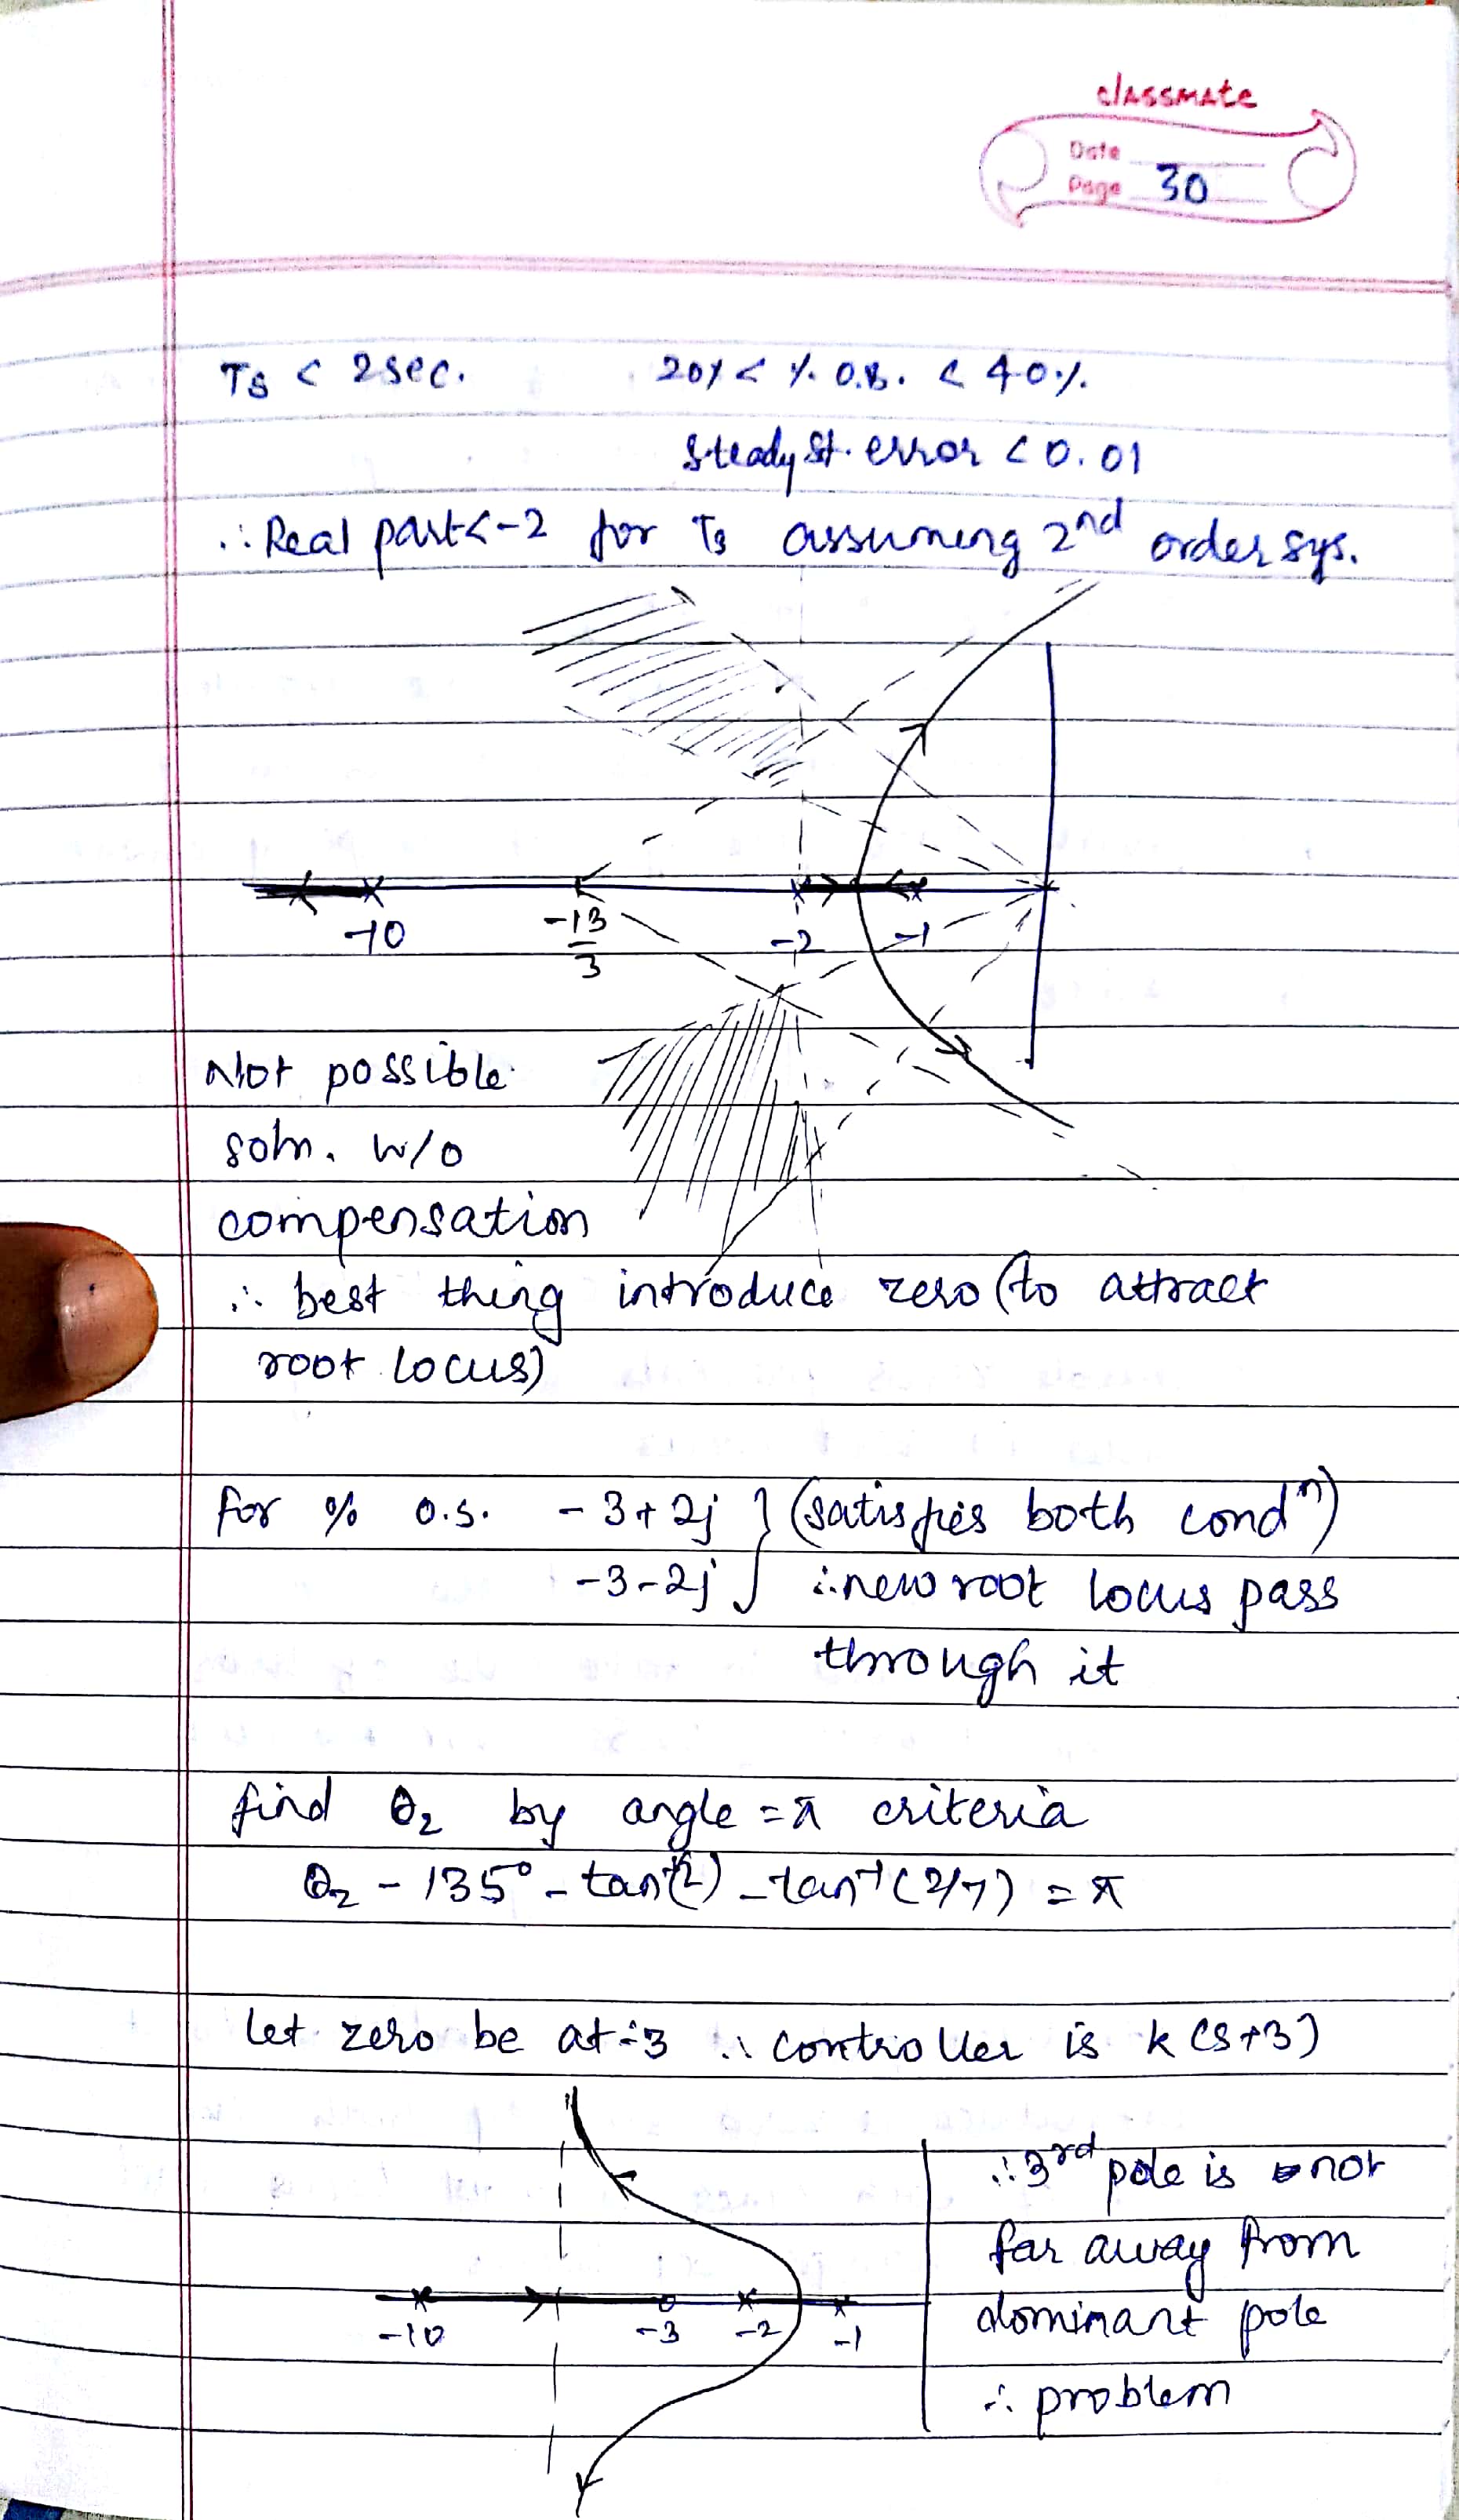 classmate
Date
Page 30
Ts < 2sec. 20% < % O.S. < 40%.
Steady St. error < 0.01
∴ Real part<-2 for Ts assuming 2nd order sys.
-10 -13/3 -2 -1
Not possible
soln. w/o
compensation
∴ best thing introduce zero (to attract
root locus)
for % o.s. - 3+2j } (satisfies both condn)
-3-2j ∴ new root locus pass
through it
find θz by angle = π criteria
θz - 135° - tan-1(2) - tan-1(2/7) = π
Let zero be at -3 ∴ controller is k(s+3)
∴ 3rd pole is not
far away from
dominant pole
∴ problem
-10 -3 -2 -1